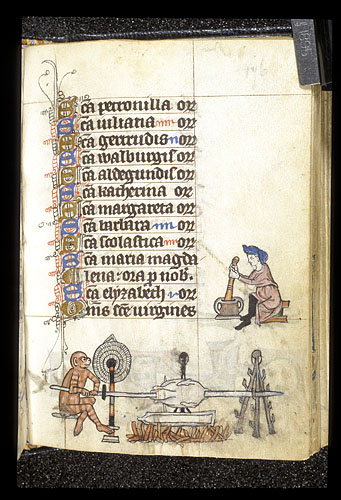 Sca petronilla orꝛ
Sca iuliana orꝛ
Sca gertrudis orꝛ
Sca walburgis orꝛ
Sca aldegundis orꝛ
Sca katherina orꝛ
Sca margareta orꝛ
Sca barbara orꝛ
Sca scolastica orꝛ
Sca maria magda
lena · ora p nob.
Sca elyzabech orꝛ
Oms sce virgines